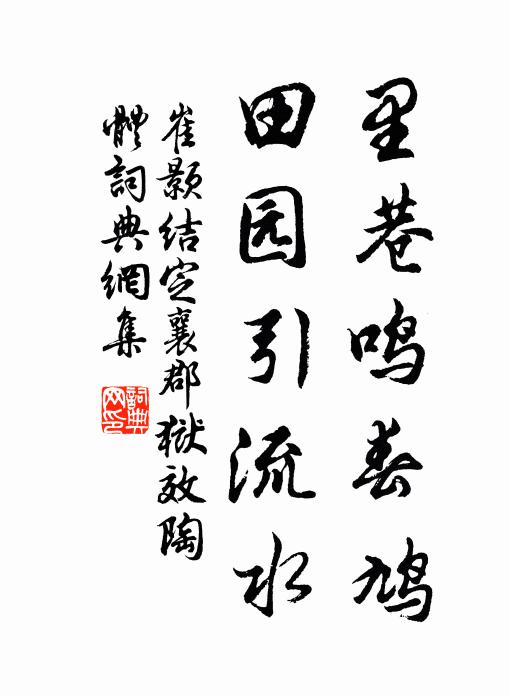 里巷鸣春鸠
田园引流水
崔颢结定襄郡獄效陶
體詞典網集
詞典网印